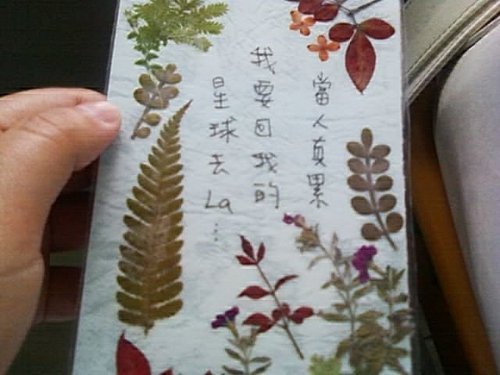 當人真累
我要回我的
星球去La...